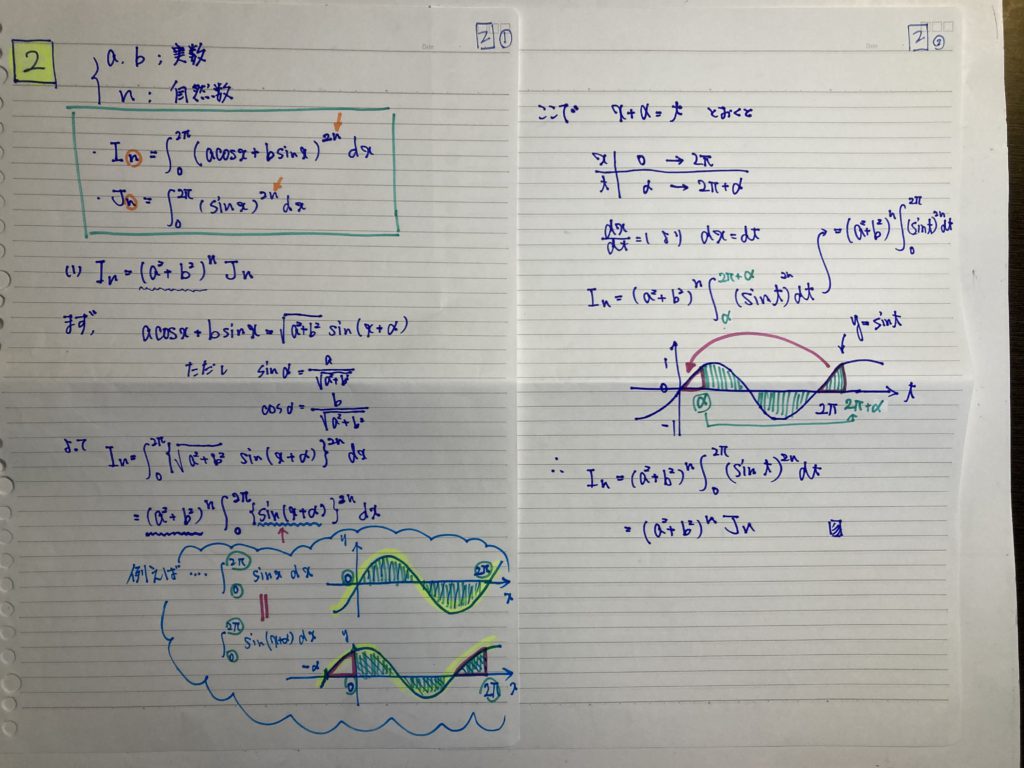 2 ①
2
a. b : 実数
n : 自然数
・ Iₙ = ∫₀^{2π} (a cos x + b sin x)^{2n} dx
・ Jₙ = ∫₀^{2π} (sin x)^{2n} dx
(1) Iₙ = (a² + b²)ⁿ Jₙ
まず, a cos x + b sin x = √(a²+b²) sin (x+α)
ただし sin α = a/√(a²+b²)
cos α = b/√(a²+b²)
よって Iₙ = ∫₀^{2π} {√(a²+b²) sin (x+α)}^{2n} dx
= (a² + b²)ⁿ ∫₀^{2π} {sin (x+α)}^{2n} dx
例えば …. ∫₀^{2π} sin x dx
y
0 2π x
||
∫₀^{2π} sin (x+α) dx
y
-α 0 2π x
2 ②
ここで x + α = t とおくと
x | 0 → 2π
t | α → 2π+α
dx/dt = 1 より dx = dt
Iₙ = (a² + b²)ⁿ ∫_α^{2π+α} (sin t)^{2n} dt
= (a²+b²)ⁿ ∫₀^{2π} (sin t)^{2n} dt
y = sin t
1
0 α 2π 2π+α t
-1
∴ Iₙ = (a² + b²)ⁿ ∫₀^{2π} (sin t)^{2n} dt
= (a² + b²)ⁿ Jₙ